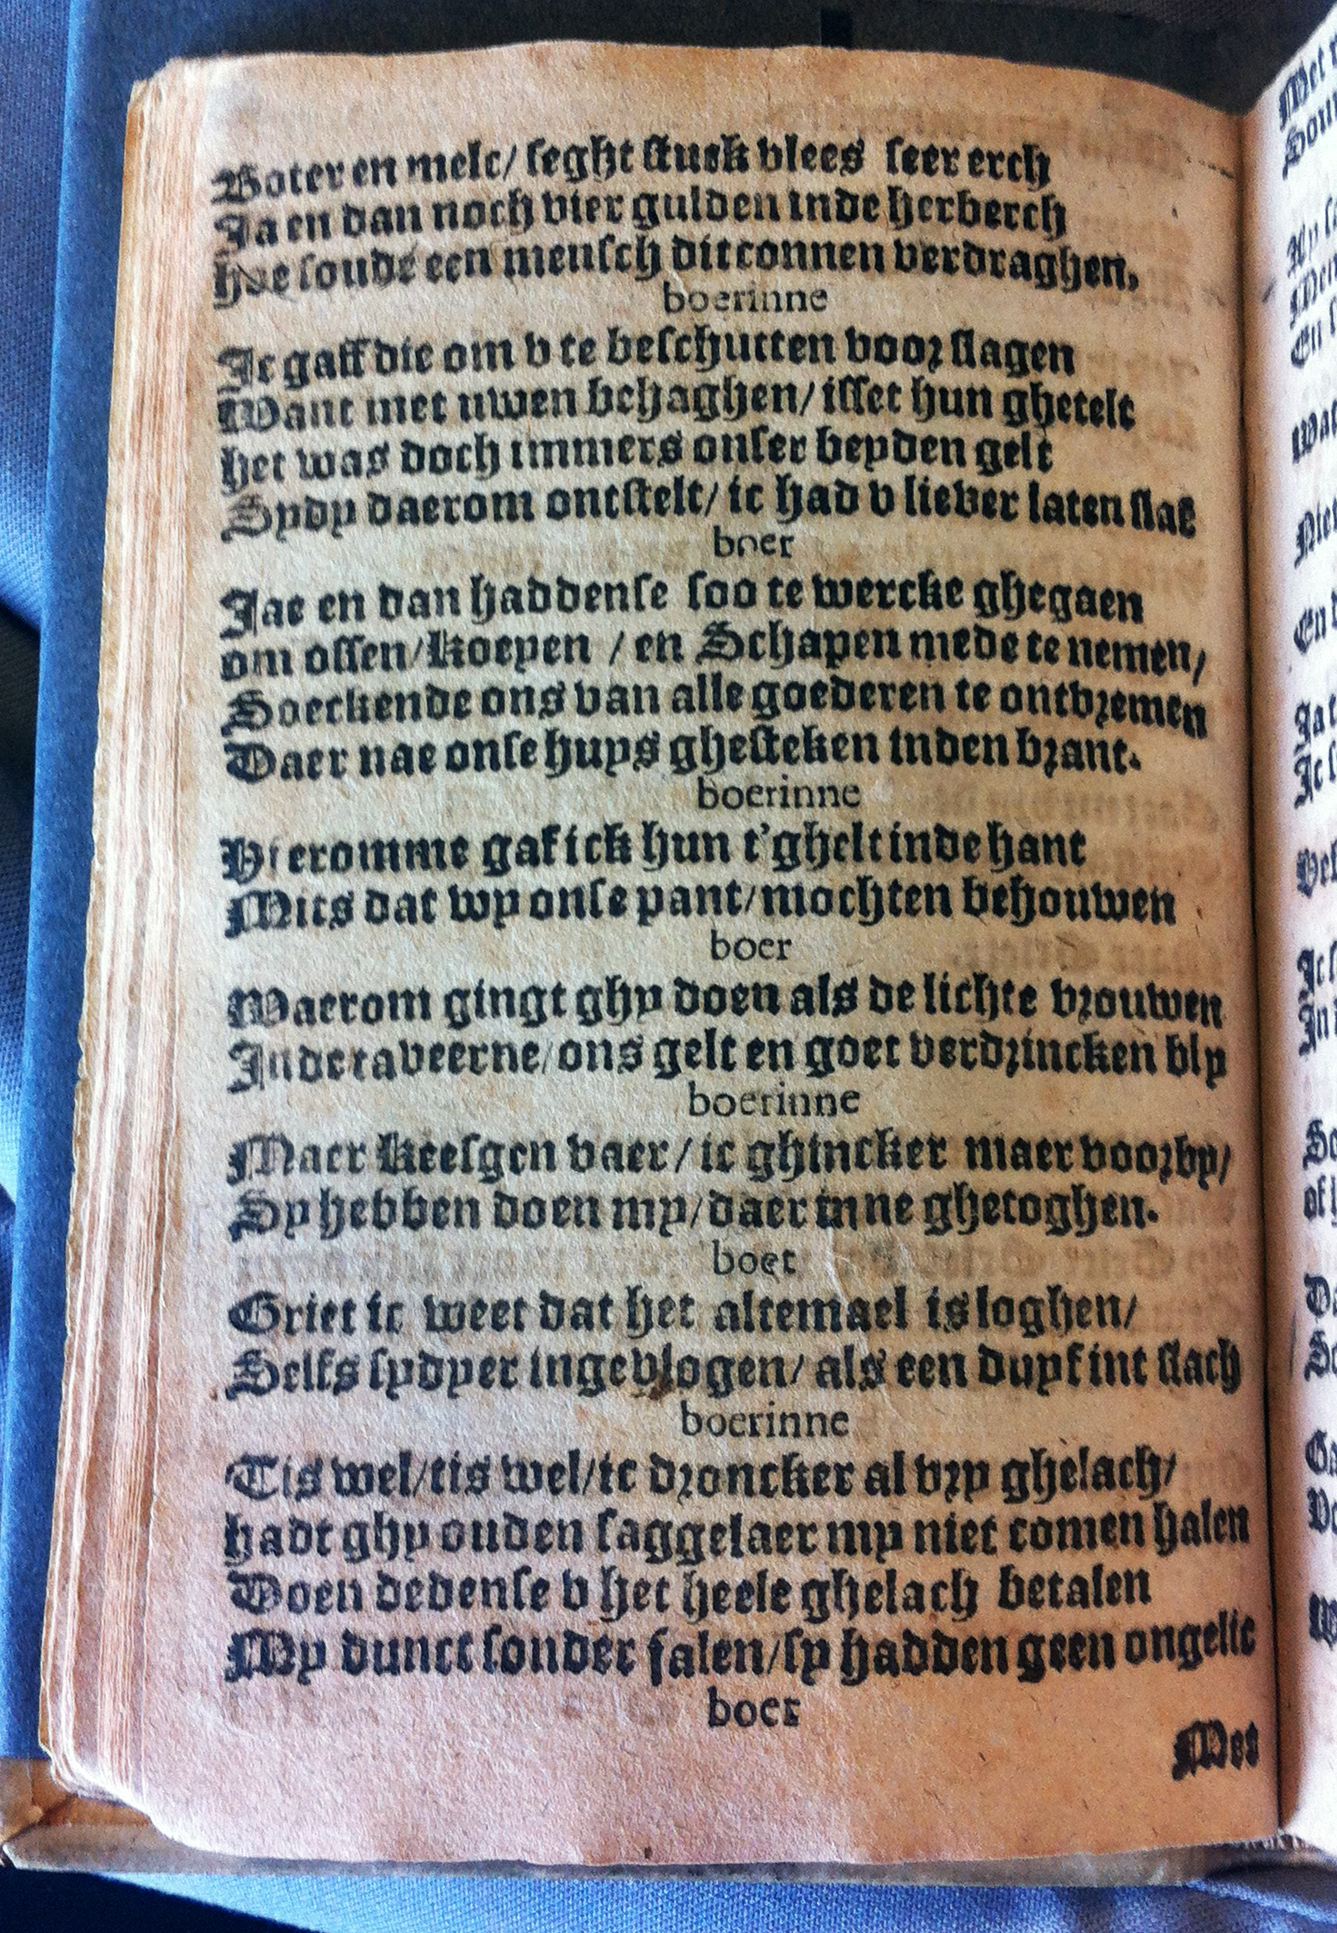 Boter en melc/ seght stuck vlees seer erch
Ja en dan noch vier gulden inde herberch
hoe soude een mensch dit connen verdraghen,
boerinne
Ic gaff die om v te beschutten voor slagen
Want met uwen behaghen/ isset hun ghetelt
het was doch immers onser beyden gelt
Sydy daerom ontstelt/ ic had v liever laten slaē
boer
Jae en dan haddense soo te wercke ghegaen
om ossen/ koeyen / en Schapen mede te nemen/
Soeckende ons van alle goederen te ontvremen
Daer nae onse huys ghesteken inden brant.
boerinne
Hieromme gaf ick hun t'ghelt inde hant
Mits dat wy onse pant/ mochten behouwen
boer
Waerom gingt ghy doen als de lichte vrouwen
In de taveerne/ ons gelt en goet verdrincken bly
boerinne
Maer keesgen vaer/ ic ghincker maer voorby/
Sy hebben doen my/ daer inne ghetoghen.
boer
Griet ic weet dat het altemael is loghen/
Selfs sydyer ingevlogen/ als een duyf int slach
boerinne
Tis wel/ tis wel/ ic droncker al vry ghelach/
hadt ghy ouden saggelaer my niet comen halen
Doen dedense v het heele ghelach betalen
My dunct sonder falen/ sy hadden geen ongelic
boer
Met